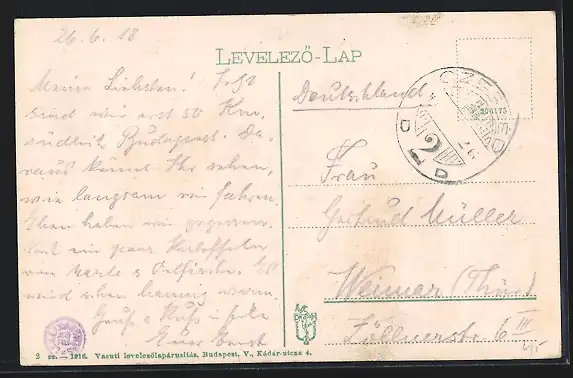 26.6.18
LEVELEZŐ-LAP
Meine Liebsten! Jetzt
sind wir erst 50 Km.
südlich Budapest. Da-
raus könnt Ihr sehen,
wie langsam wir fahren.
Eben haben wir gegessen.
ein paar Kartoffeln
von
wird schon warm.
Gruß u. Kuss in Liebe
Euer Ernst
Deutschland
Frau
Gertrud Müller
Weimar (Thür.)
Zöllnerstr. 6 III
2 sz. — 1916. Vasuti levelezőlapárusitás, Budapest, V., Kádár-utcza 4.